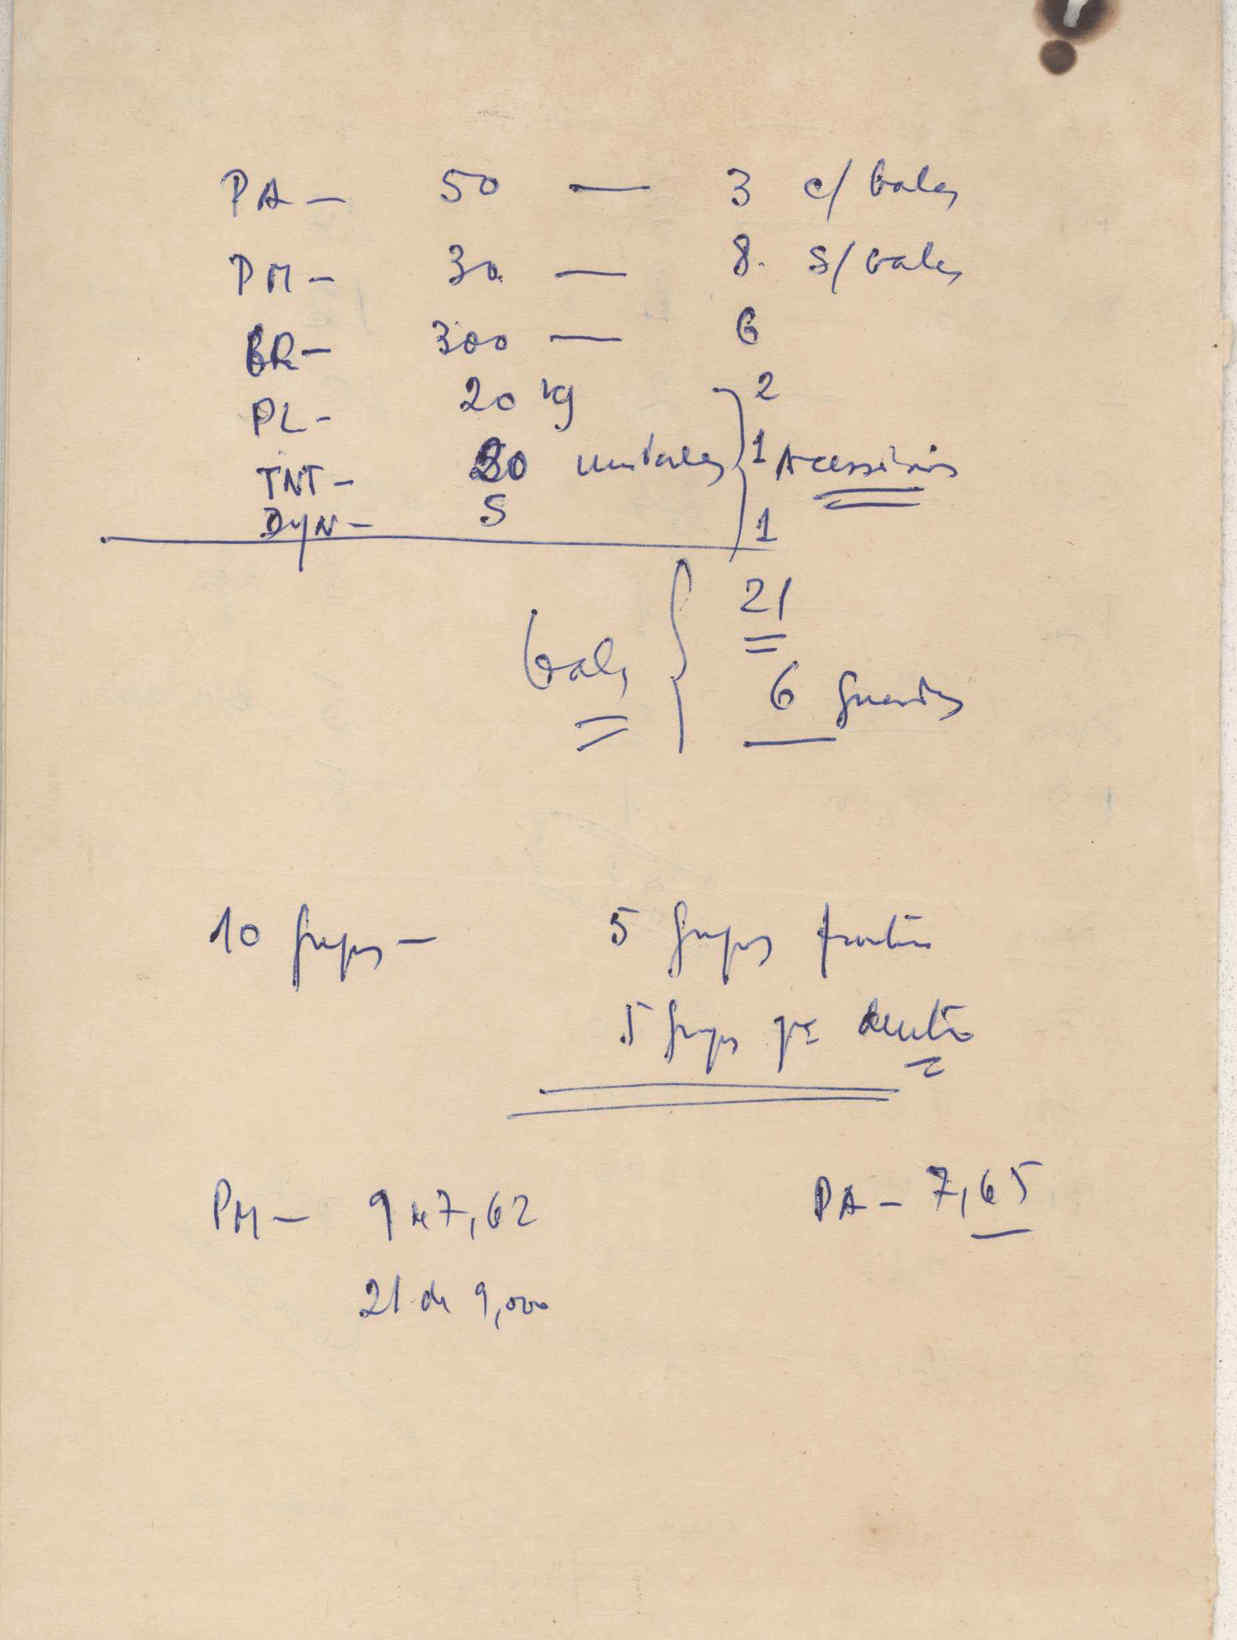 PA - 50 — 3 c/ balas
PM - 30 — 8. s/ balas
GR - 300 — 6
PL - 20 kg 2
TNT - 20 unidades 1 Acessórios
DYN - 5 1
21
balas
6 guardas
10 grupos - 5 grupos fronteira
5 grupos pª dentro
PM - 9 M7,62 PA - 7,65
21 de 9,000